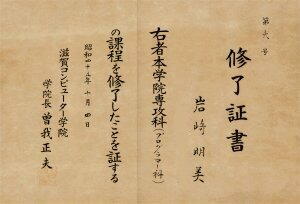 第六号
修了証書
岩崎明美
右者本学院専攻科(プログラマー科)
の課程を修了したことを証する
昭和四十五年十月四日
滋賀コンピューター学院
学院長 曽我正夫